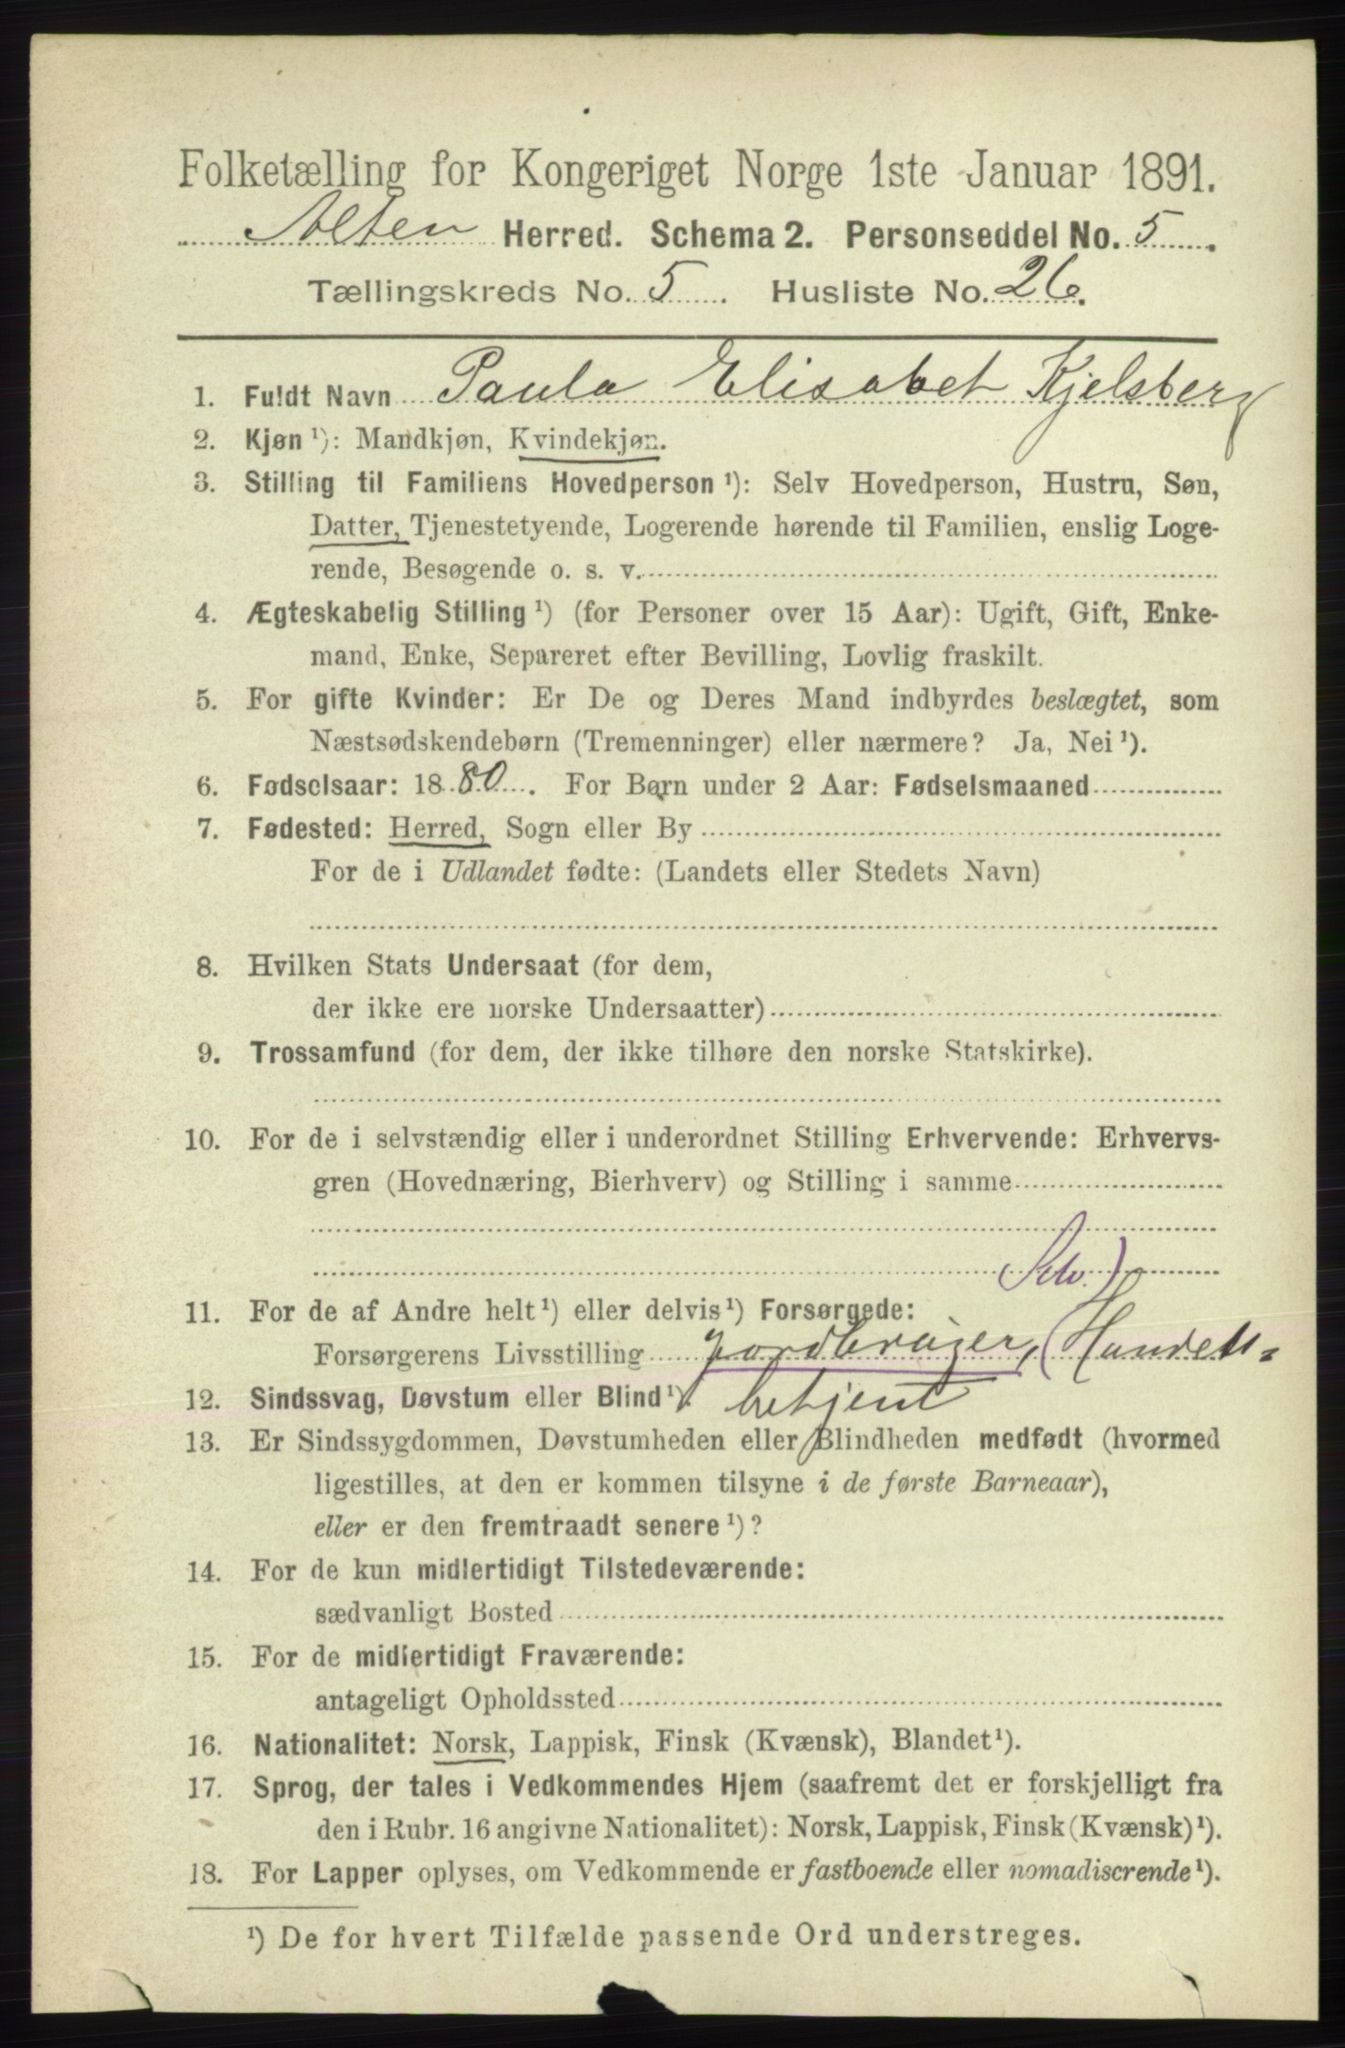 Folketælling for Kongeriget Norge 1ste Januar 1891.
Alten Herred. Schema 2. Personseddel No. 5.
Tællingskreds No. 5. Husliste No. 26.
1. Fuldt Navn Paula Elisabet Kjelsberg
2. Kjøn ¹): Mandkjøn, Kvindekjøn.
3. Stilling til Familiens Hovedperson ¹): Selv Hovedperson, Hustru, Søn,
Datter, Tjenestetyende, Logerende hørende til Familien, enslig Loge-
rende, Besøgende o. s. v.
4. Ægteskabelig Stilling ¹) (for Personer over 15 Aar): Ugift, Gift, Enke-
mand, Enke, Separeret efter Bevilling, Lovlig fraskilt.
5. For gifte Kvinder: Er De og Deres Mand indbyrdes beslægtet, som
Næstsødskendebørn (Tremenninger) eller nærmere? Ja, Nei ¹).
6. Fødselsaar: 1880. For Børn under 2 Aar: Fødselsmaaned
7. Fødested: Herred, Sogn eller By
For de i Udlandet fødte: (Landets eller Stedets Navn)
8. Hvilken Stats Undersaat (for dem,
der ikke ere norske Undersaatter)
9. Trossamfund (for dem, der ikke tilhøre den norske Statskirke).
10. For de i selvstændig eller i underordnet Stilling Erhvervende: Erhvervs-
gren (Hovednæring, Bierhverv) og Stilling i samme
Selv.)
11. For de af Andre helt ¹) eller delvis ¹) Forsørgede:
Forsørgerens Livsstilling Jordbruger, (Handels-
12. Sindssvag, Døvstum eller Blind ¹). betjent
13. Er Sindssygdommen, Døvstumheden eller Blindheden medfødt (hvormed
ligestilles, at den er kommen tilsyne i de første Barneaar),
eller er den fremtraadt senere ¹)?
14. For de kun midlertidigt Tilstedeværende:
sædvanligt Bosted
15. For de midlertidigt Fraværende:
antageligt Opholdssted
16. Nationalitet: Norsk, Lappisk, Finsk (Kvænsk), Blandet ¹).
17. Sprog, der tales i Vedkommendes Hjem (saafremt det er forskjelligt fra
den i Rubr. 16 angivne Nationalitet): Norsk, Lappisk, Finsk (Kvænsk) ¹).
18. For Lapper oplyses, om Vedkommende er fastboende eller nomadiserende ¹).
¹) De for hvert Tilfælde passende Ord understreges.